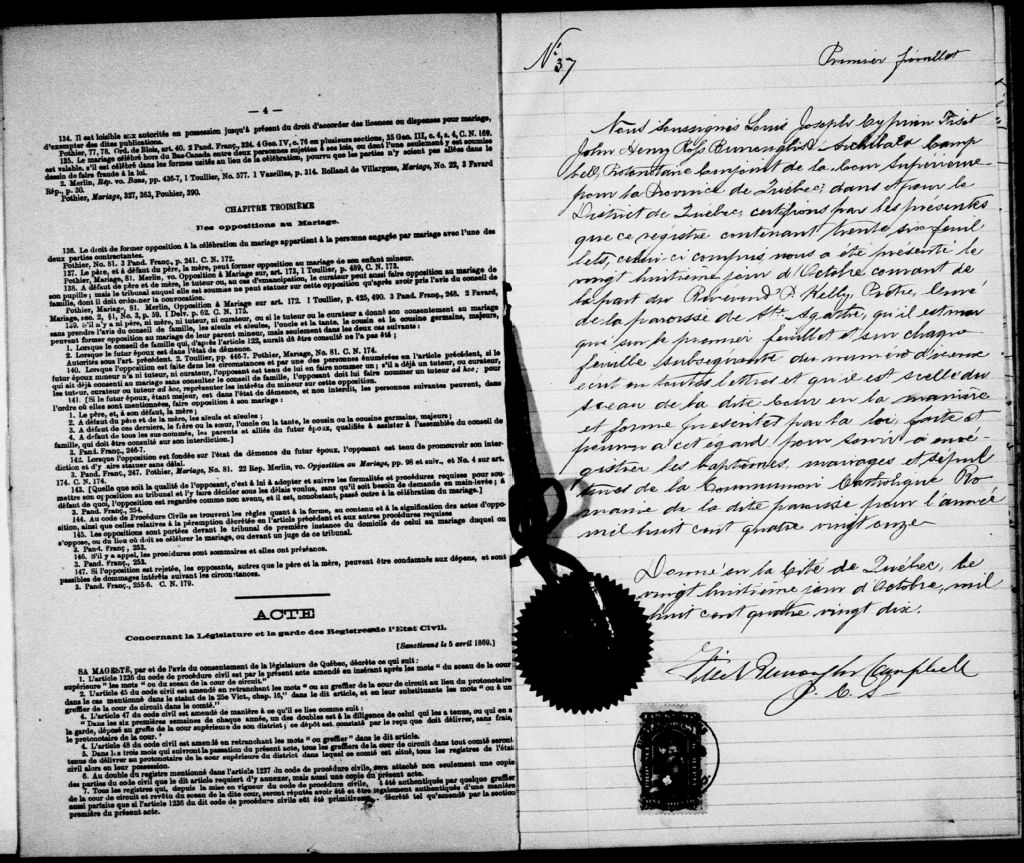 — 4 —
134. Il est loisible aux autorités en possession jusqu'à présent du droit d'accorder des licences ou dispenses pour mariage,
d'exempter des dites publications.
Pothier, 77, 78. Ord. de Blois, art. 40. 2 Pand. Franç., 224. 4 Geo. IV, c. 76 en plusieurs sections, 35 Geo. III, c. 4, s. 4, C. N. 169.
135. Le mariage célébré hors du Bas-Canada entre deux personnes sujettes à ses lois, ou dont l'une seulement y est soumise
est valable, s'il est célébré dans les formes usités au lieu de la célébration, pourvu que les parties n'y soient pas allées dans le
dessin de faire fraude à la loi.
2. Merlin, Rép. vo. Bans, pp. 436-7, 1 Toullier, No. 577. 1 Vazeilles, p. 314. Rolland de Villargues, Mariage, No. 22, 3 Favard
Rép., p. 30.
Pothier, Mariage, 327, 363, Pouhier, 390.
CHAPITRE TROISIÈME
Des oppositions au Mariage.
136. Le droit de former opposition à la célébration du mariage appartient à la personne engagée par mariage avec l'une des
deux parties contractantes.
Pothier, No. 81. 3 Pand. Franç., p. 241. C. N. 172.
137. Le père, et à défaut du père, la mère, peut former opposition au mariage de son enfant mineur.
Pothier, Mariage, 81. Merlin, vo. Opposition à Mariage, sur art. 173, 1 Toullier, p. 489, C. N. 173.
138. A défaut de père et de mère, le tuteur ou, au cas d'émancipation, le curateur peut aussi faire opposition au mariage de
son pupille; mais le tribunal auquel elle est soumise ne peut statuer sur cette opposition qu'après avoir pris l'avis du conseil de
famille, dont il doit ordonner la convocation.
Pothier, Mariage, 81. Merlin, Opposition à Mariage sur art. 172. 1 Toullier, p. 425, 490. 3 Pand. Franç., 248. 2 Favard,
Mariage, sec. 2, 41, No. 3, p. 59. 1 Delv. p. 62. C. N. 175.
139. S'il n'y a ni père, ni mère, ni tuteur, ni curateur, ou si le tuteur ou le curateur a donné son consentement au mariage
sans prendre l'avis du conseil de famille, les aïeuls et aïeules, l'oncle et la tante, le cousin et la cousine germains, majeurs,
peuvent former opposition au mariage de leur parent mineur, mais seulement dans les deux cas suivants:
1. Lorsque le conseil de famille qui, d'après l'article 122, aurait dû être consulté ne l'a pas été;
2. Lorsque le futur époux est dans l'état de démence.
Autorités sous l'art. précédent. 2 Toullier, pp. 446-7. Pothier, Mariage, No. 81. C. N. 174.
140. Lorsque l'opposition est faite dans les circonstances et par une des personnes énumérées en l'article précédent, si le
futur époux mineur n'a ni tuteur, ni curateur, l'opposant est tenu de lui en faire nommer un; s'il a déjà un tuteur, ou curateur,
qui ait déjà consenti au mariage sans consulter le conseil de famille, l'opposant doit lui faire nommer un tuteur ad hoc; pour
les tuteur, curateur ou tuteur ad hoc, représenter les intérêts du mineur sur cette opposition.
141. [Si le futur époux, étant majeur, est dans l'état de démence, et non interdit, les personnes suivantes peuvent, dans
l'ordre où elles sont mentionnées, faire opposition à son mariage:
1. Le père, et, à son défaut, la mère;
2. A défaut du père et de la mère, les aïeuls et aïeules;
3. A défaut de ces derniers, le frère ou la sœur, l'oncle ou la tante, le cousin ou la cousine germains, majeurs;
4. A défaut de tous les sus-nommés, les parents et alliés du futur époux, qualifiés à assister à l'assemblée du conseil de
famille, qui doit être consulté sur son interdiction.]
3. Pand. Franç., 246-7.
142. Lorsque l'opposition est fondée sur l'état de démence du futur époux, l'opposant est tenu de promouvoir son inter-
diction et d'y aire statuer sans délai.
3. Pand. Franç., 247. Pothier, Mariage, No. 81. 22 Rep. Merlin, vo. Opposition au Mariage, pp. 98 et suiv., et No. 4 sur art.
174. C. N. 174.
143. [Quelle que soit la qualité de l'opposant, c'est à lui à adopter et suivre les formalités et procédures requises pour sou-
mettre son opposition au tribunal et l'y faire décider sous les délais voulus, sans qu'il soit besoin de demande en main-levée; à
défaut de quoi, l'opposition est regardée comme non avenu, et il est, nonobstant, passé outre à la célébration du mariage.]
3. Pand. Franç., 254.
144. Au code de Procédure Civile se trouvent les règles quant à la forme, au contenu et à la signification des actes d'oppo-
sition, ainsi que celles relatives à la péremption décrétée en l'article précédent et aux autres procédures requises
145. Les oppositions sont portées devant le tribunal de première instance du domicile de celui au mariage duquel on
s'oppose, ou du lieu où doit se célébrer le mariage, ou devant un juge de ce tribunal.
3. Pand. Franç., 253.
146. S'il y a appel, les procédures sont sommaires et elles ont préséance.
3. Pand. Franç., 253.
147. Si l'opposition est rejetée, les opposants, autres que le père et la mère, peuvent être condamnés aux dépens, et sont
passibles de dommages intérêts suivant les circonstances.
3. Pand. Franç., 255-6. C. N. 179.
ACTE
Concernant la Législature et la garde des Registres de l'Etat Civil.
[Sanctionné le 5 avril 1869.]
SA MAGESTÉ, par et de l'avis du consentement de la législature de Québec, décrète ce qui suit:
1. L'article 1236 du code de procédure civil est par le présent acte amendé en insérant après les mots "du sceau de la cour
supérieure" les mots "ou du sceau de la cour de circuit."
2. L'article 45 du code civil est amendé en retranchant les mots "ou au greffier de la cour de circuit au lieu du protonotaire
dans le cas mentionné dans le statut de la 25e Vict., chap. 16," dans le dit article, et en leur substituants les mots "ou à un
greffier de la cour de circuit dans le comté."
4. L'article 47 du code civil est amendé de manière à ce qu'il se lise comme suit:
"Dans les six premières semaines de chaque année, un des doubles est à la diligence de celui qui les a tenus, ou qui en a
la garde, déposé au greffe de la cour supérieure de son district; ce dépôt est constaté par le reçu que doit délivrer, sans frais,
le protonotaire de la cour."
4. L'article 48 du code civil est amendé en retranchant les mots "ou greffier" dans le dit article.
5. Dans les trois mois qui suivront la passation du présent acte, tous les greffiers de la cour de circuit dans tout comté seront
tenus de délivrer au protonotaire de la cour supérieure du district dans lequel ce comté est situé, tous les registres de l'état
civil alors en leur possession.
6. Au double du registre mentionné dans l'article 1237 du code de procédure civile, sera attaché non seulement une copie
des parties du code civil que le dit article requiert d'y annexer, mais aussi une copie du présent acte.
7. Tous les registres qui, depuis la mise en vigueur du code de procédure civile, ont été authentiqués par quelque greffier
de la cour de circuit et revêtu du sceau de la dite cour, seront réputés avoir été et être légalement authentiqués d'une manière
aussi parfaite que si l'article 1236 du dit code de procédure civile eût été primitivement décrété tel qu'amendé par la section
première du présent acte.
No. 37
Premier feuillet
Nous soussignés Louis Joseph Cyprien Fiset
John Henry Ross Burroughs & Archibald Camp
bell, Protonotaire Conjoint de la Cour Supérieure
pour la Province de Québec, dans et pour le
District de Québec, certifions par les présentes
que ce registre contenant trente six feuil
lets, celui ci compris, nous a été présenté le
vingt huitième jour d'Octobre courant de
la part du Révérend P. Kelly, Prêtre, Curé
de la paroisse de Ste. Agathe, qu'il est mar
qué sur le premier feuillet et sur chaque
feuillet subséquent du numéro d'iceux
écrit en toutes lettres et qu'il est scellé du
sceau de la dite Cour en la manière
et forme prescrites par la loi, faite et
pourvu à cet égard pour servir à enré-
gistrer les baptêmes, mariages et sépul
tures de la Communion Catholique Ro
maine de la dite paroisse pour l'année
mil huit cent quatre vingt onze
Donné en la Cité de Québec, le
vingt huitième jour d'Octobre, mil
huit cent quatre vingt dix.
Fiset Burroughs Campbell
P. C. S.